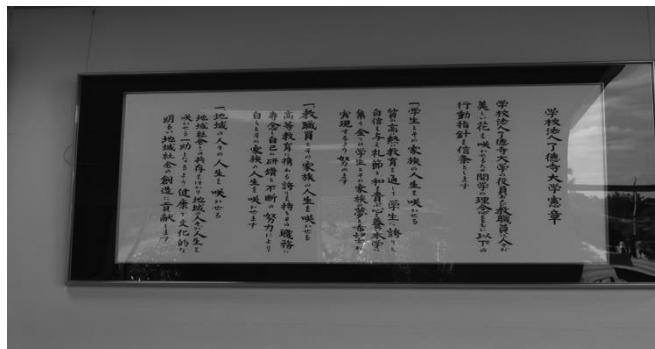 学校法人了徳寺大学憲章
学校法人了徳寺大学の役員及び教職員は人が
美しい花を咲かせるための開学の理念をもとに以下の
行動指針を信条とします
一、学生とその家族の人生を咲かせる
質の高い教育を通して学生に誇りと
自信を与え礼節と和を貴ぶ心を養い本学に
集う全ての学生とその家族が夢と希望を
実現するよう努めます
一、教職員とその家族の人生を咲かせる
高等教育に携わる誇りを持ちその職務に
専念し自己の研鑽と不断の努力により
自らとその家族の人生を咲かせます
一、地域の人々の人生を咲かせる
地域社会との共存をはかり地域の人々の人生を
咲かせる一助となるよう健康で文化的な
明るい地域社会の創造に貢献します